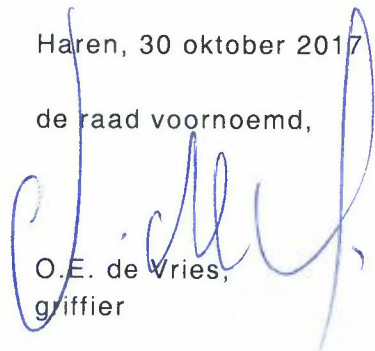 Haren, 30 oktober 2017
de raad voornoemd,
O.E. de Vries,
griffier